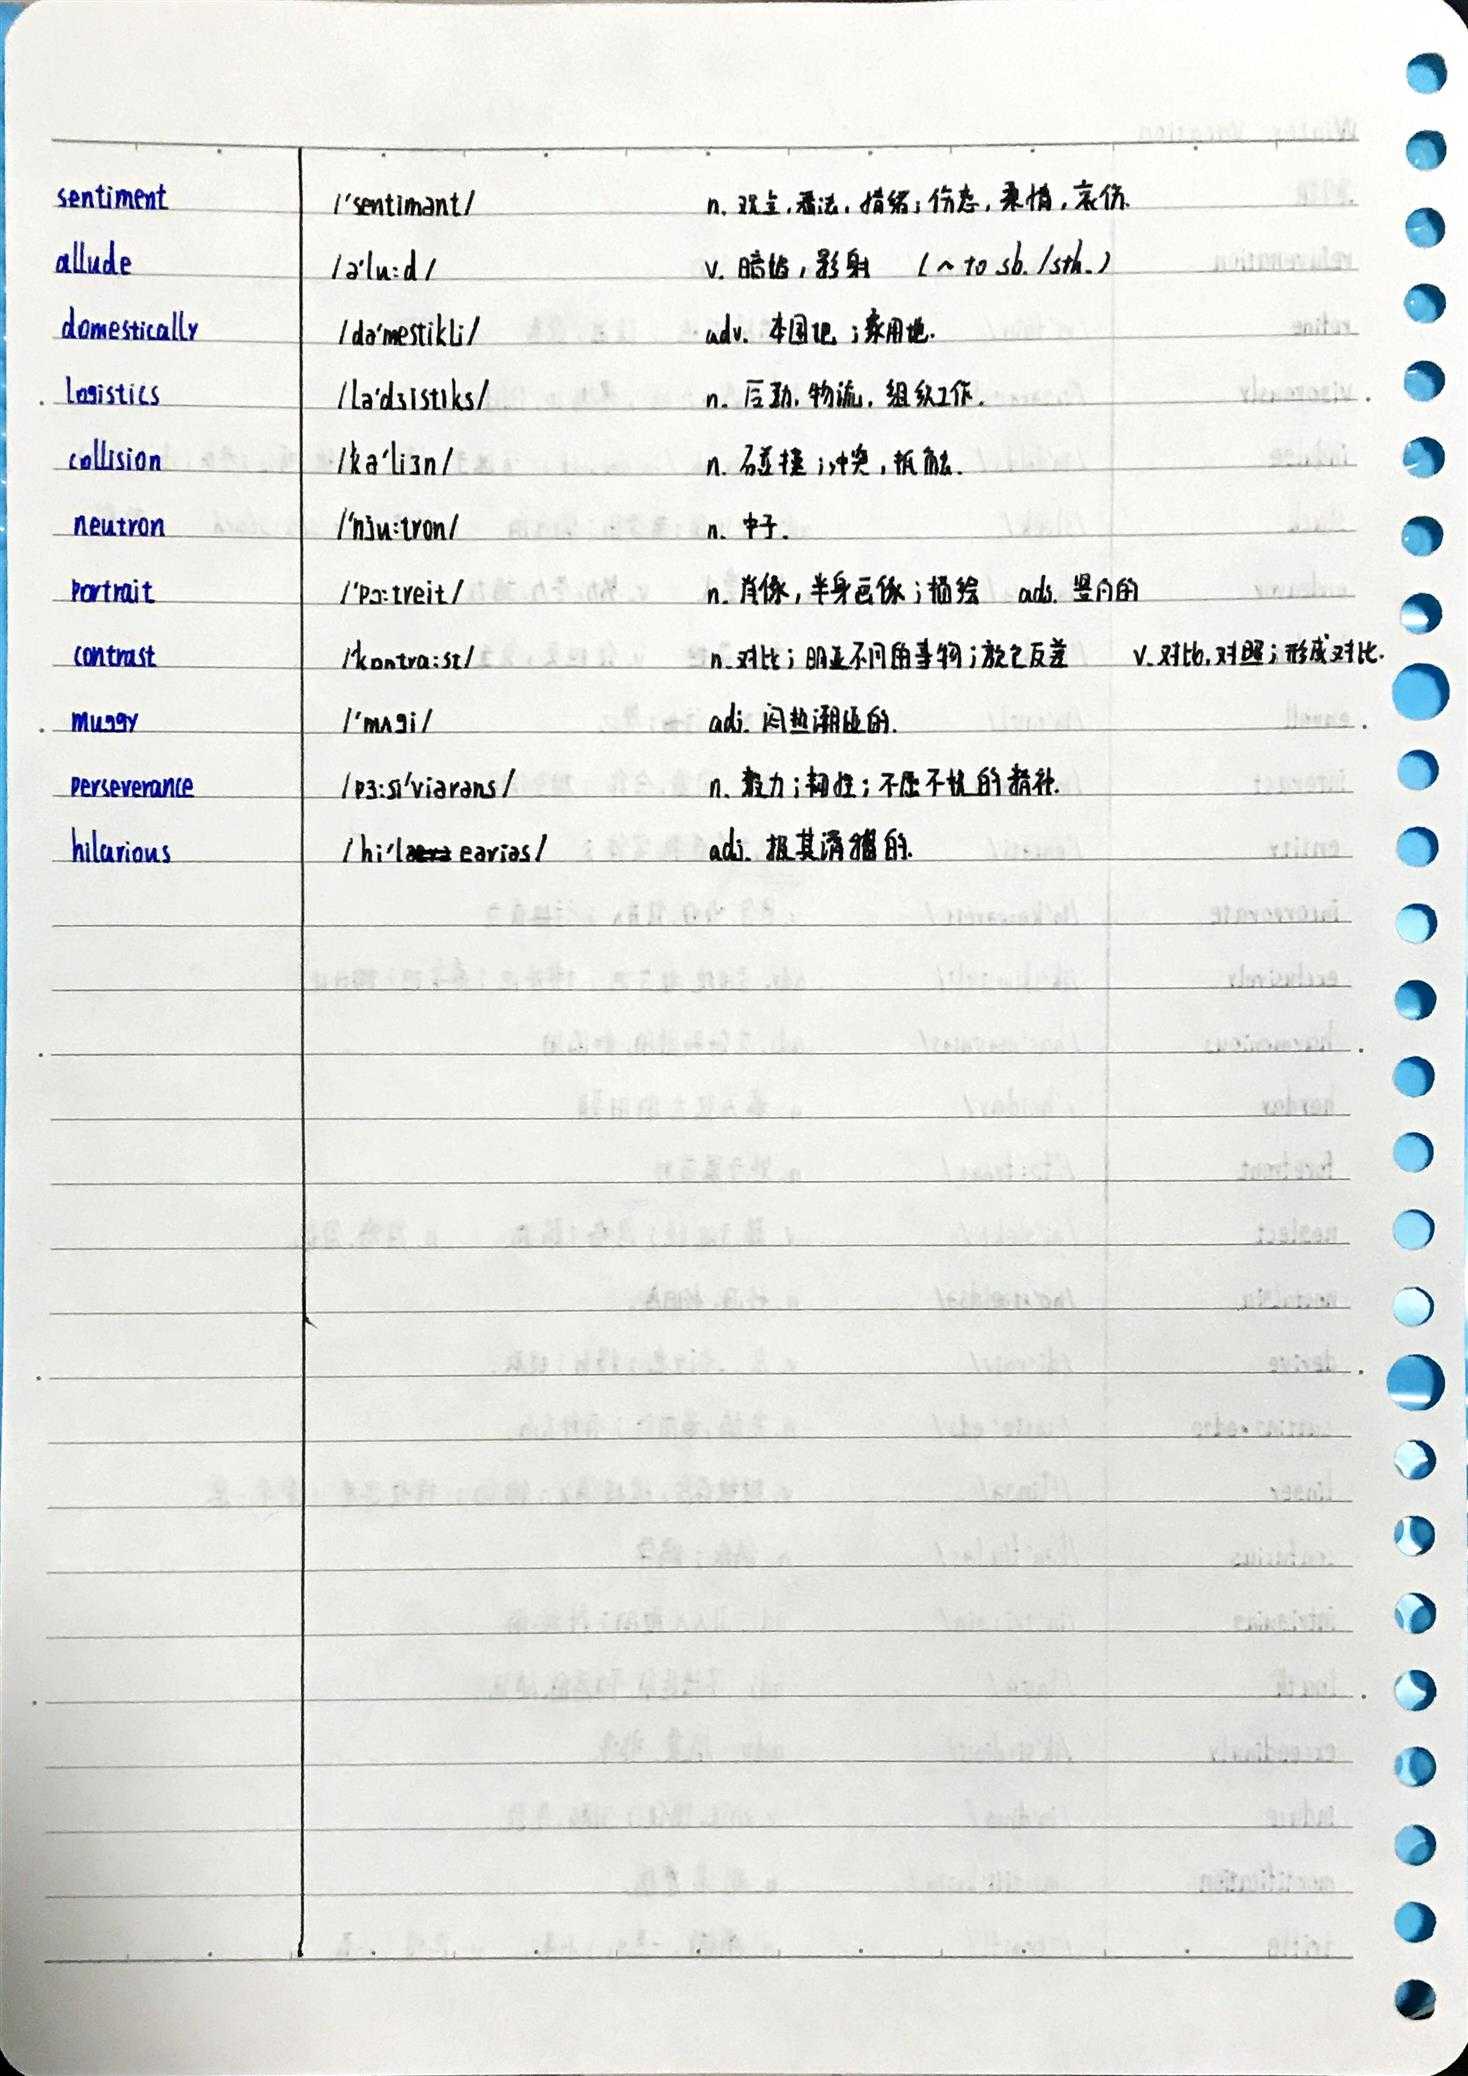 sentiment /'sentimənt/ n. 观点,看法,情绪;伤态,柔情,哀伤.
allude /ə'lu:d/ v. 暗指,影射 (~ to sb./sth.)
domestically /də'mestikli/ adv. 本国地;家用地.
logistics /lə'dʒistiks/ n. 后勤,物流,组织工作.
collision /kə'liʒn/ n. 碰撞;冲突,抵触.
neutron /'nju:tron/ n. 中子.
portrait /'pɔ:treit/ n. 肖像,半身画像;描绘 adj. 竖向的
contrast /'kɒntra:st/ n. 对比;明显不同的事物;放之反差 v. 对比,对照;形成对比.
muggy /'mʌgi/ adj. 闷热潮湿的.
perseverance /pɜ:si'viərəns/ n. 毅力;韧性;不屈不挠的精神.
hilarious /hi'leəriəs/ adj. 极其滑稽的.